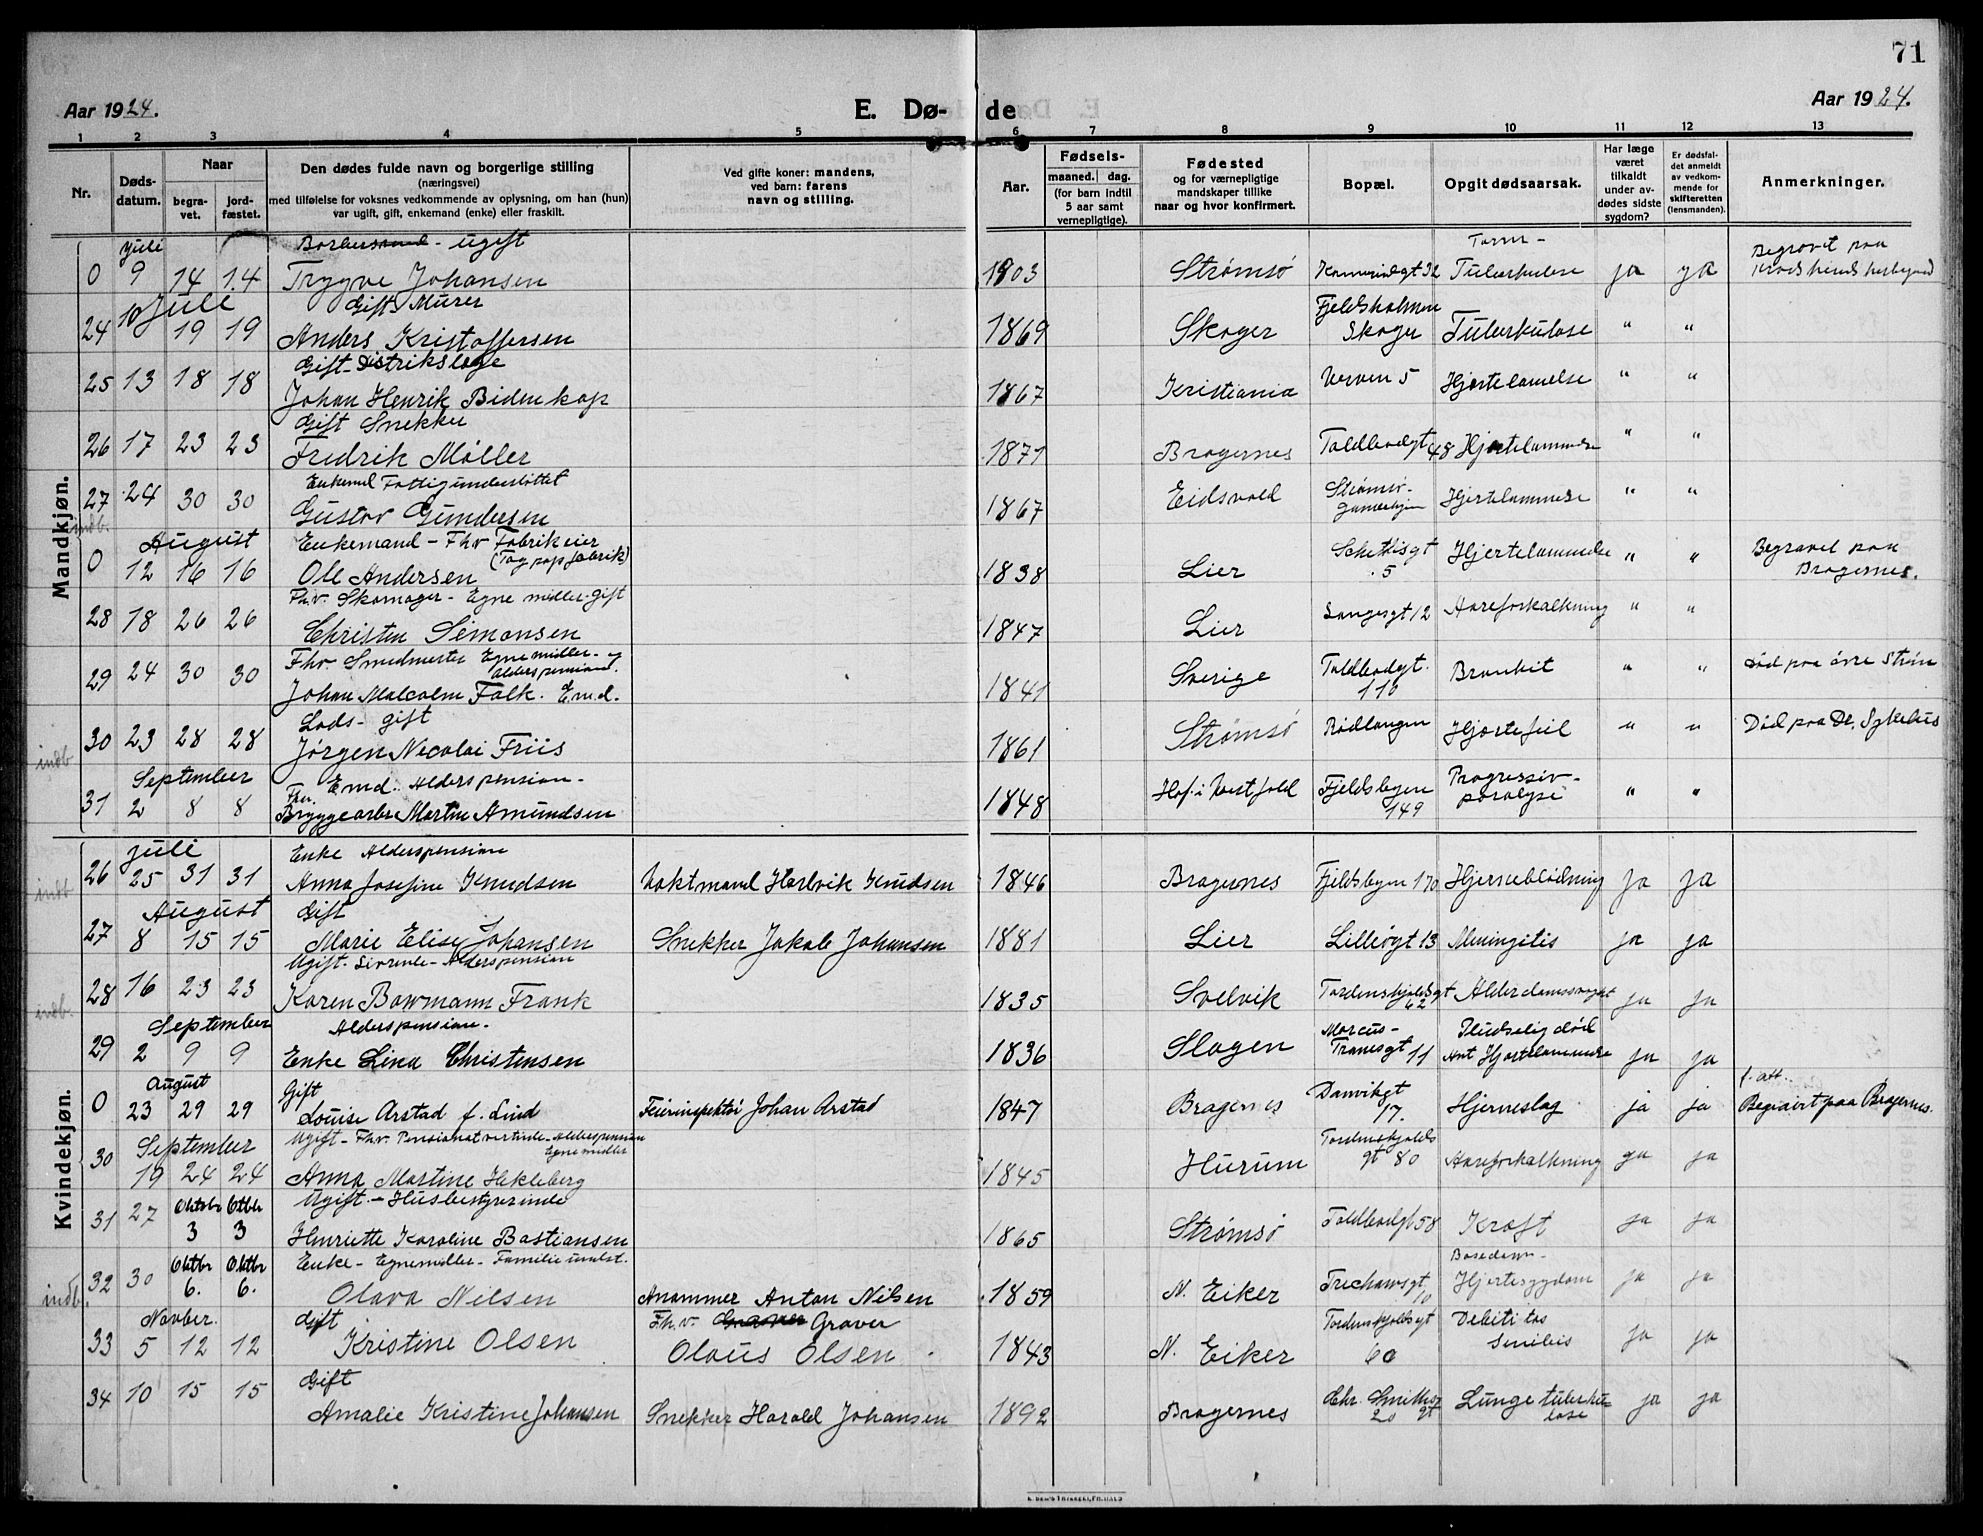 71
Aar 1924.
E. Dø- de
Aar 1924.
1 2 3 4 5 6 7 8 9 10 11 12 13
Nr.
Døds-datum.
Naar
begra-vet.
jord-fæstet.
Den dødes fulde navn og borgerlige stilling
(næringsvei)
med tilføielse for voksnes vedkommende av oplysning, om han (hun)
var ugift, gift, enkemand (enke) eller fraskilt.
Ved gifte koner: mandens,
ved barn: farens
navn og stilling.
Aar.
Fødsels-
maaned. dag.
(for barn indtil
5 aar samt
vernepligtige).
Fødested
og for værnepligtige
mandskaper tillike
naar og hvor konfirmert.
Bopæl.
Opgit dødsaarsak.
Har læge
været
tilkaldt
under av-
dødes sidste
sygdom?
Er dødsfal-
det anmeldt
av vedkom-
mende for
skifteretten
(lensmanden).
Anmerkninger.
Mandkjøn.
Juli - ugift Tarm- Begravet paa
0 9 14 14 Trygve Johansen 1903 Strømsø Tuberkulose ja ja
10 Juli Gift Murer Fjeldsholmen
24 19 19 Anders Kristoffersen 1869 Skoger Skoger Tuberkulose " "
Gift Distrikslæge
25 13 18 18 Johan Henrik Bidenkap 1867 Kristiania Verven 5 Hjertelamelse " "
Gift Snekker
26 17 23 23 Fredrik Møller 1871 Bragernes Toldbodgt 48 Hjertelammelse " "
Enkemd Fattigunderstøttet Strømsø-
27 24 30 30 Gustav Gundersen 1867 Eidsvold Gamlehjem Hjertelammelse " "
indb.
August Enkemand - Fhv Fabrikeier
(Tagpapfabrik)
0 12 16 16 Ole Andersen 1838 Lier 5 Hjertelammelse " " Begravet paa
Bragernes.
Fhv. Skomager - Egne midler - gift
28 18 26 26 Christen Simonsen 1847 Lier Langesgt 12 Aareforkalkning " "
Fhv Smedmester Egne midler - og
alderspension.
29 24 30 30 Johan Malcolm Falk. Emd. 1841 Sverige Toldbodgt. 116 Bronkit " " død paa øvre Strøm
Lods - gift
indb 30 23 28 28 Jørgen Necolai Friis 1861 Strømsø Rødtangen Hjertefeil " " Død paa Dr. Sykehus
September Fhv. Emd. Alderspension - Progressiv-
31 2 8 8 Bryggearb. Martin Amundsen 1848 Hof i Vestfold Fjeldsbyen 149 paralyse " "
Kvindekjøn.
Juli Enke Alderspension
indb 26 25 31 31 Anna Josefine Knudsen Vaktmand Hartvik Knudsen 1846 Bragernes Fjeldsbyen 170 Hjerneblødning ja ja
August Gift
27 8 15 15 Marie Elise Johansen Snekker Jakob Johansen 1881 Lier Lilleøgt 13 Meningitis ja ja
Ugift - Livrente - Alderspension
indb. 28 16 23 23 Karen Bowmann Frank 1835 Svelvik Tordenskjoldsgt 62 Alderdomssvaghet ja ja
September Alderspension. Marcus- Pludselig død
29 2 9 9 Enke Lina Christensen 1836 Slagen Tranesgt 11 Ant Hjertelammelse ja ja
August Gift Danvikgt f. att.
0 23 29 29 Louise Arstad f. Lind Feierinspektør Johan Arstad 1847 Bragernes 17. Hjerneslag ja ja Begravet paa Bragernes.
September Ugift - Fhv. Pensionatvertinde - Alderspension
Egne midler Tordenskjolds
30 19 24 24 Anna Martine Hekleberg 1845 Hurum gt 80 Aareforkalkning ja ja
Oktbr Oktbr Ugift - Husbestyrerinde
31 27 3 3 Henriette Karoline Bastiansen 1865 Strømsø Toldbodgt 58 Kræft ja ja
Oktbr Oktbr Enke - Egne midler - Familie underst. Basedows-
indb. 32 30 6. 6. Olava Nilsen Anton Nilsen 1859 N. Eiker 10 Hjertesygdom ja ja
Novber. Gift Fhv. Graver Tordenskjoldsgt Debilitas
33 5 12 12 Kristine Olsen Olaus Olsen 1843 N. Eiker 60 Senilis ja ja
Gift
34 10 15 15 Amalie Kristine Johansen Snekker Harald Johansen 1892 Bragernes Chr. Smithsgt 20 Lungetuberkulose ja ja